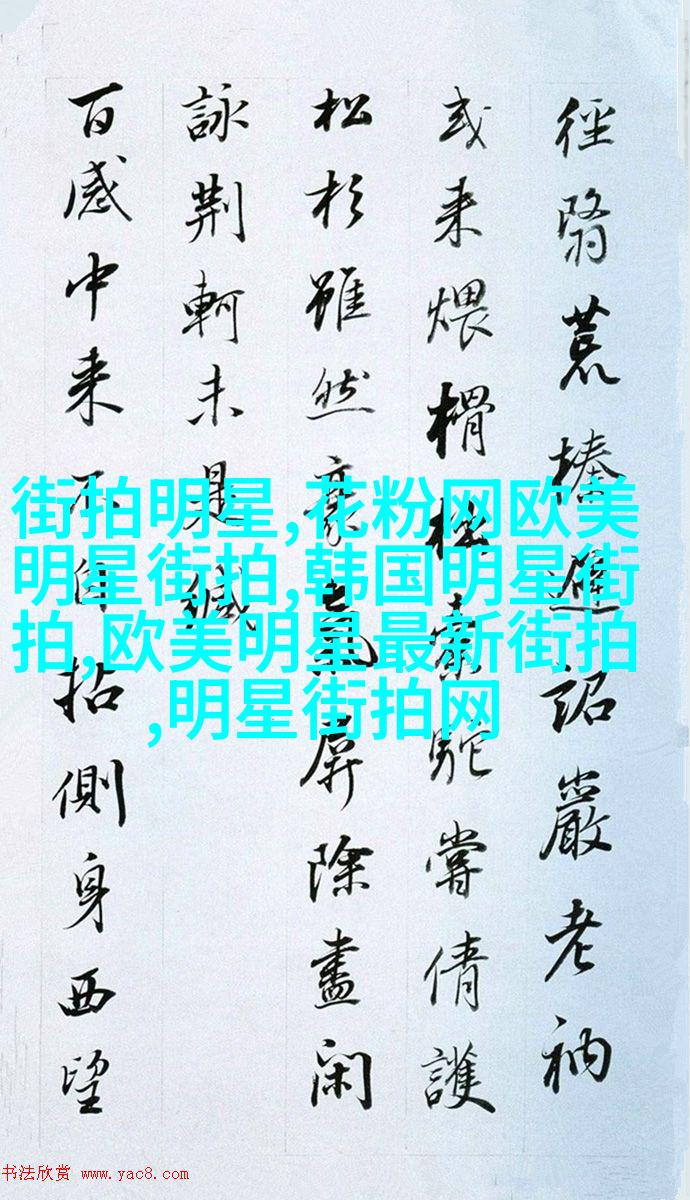 徑翳荒榛詔嚴老衲
或来煨榾柮橐駝嘗倩護
松杉雖然豪氣屏除盡闲
詠荆軻未是緘
百感中来不自拈側身西望
街拍明星,花粉网欧美
明星街拍,韩国明星街
拍,欧美明星最新街拍
,明星街拍网
书法欣赏 www.yac8.com